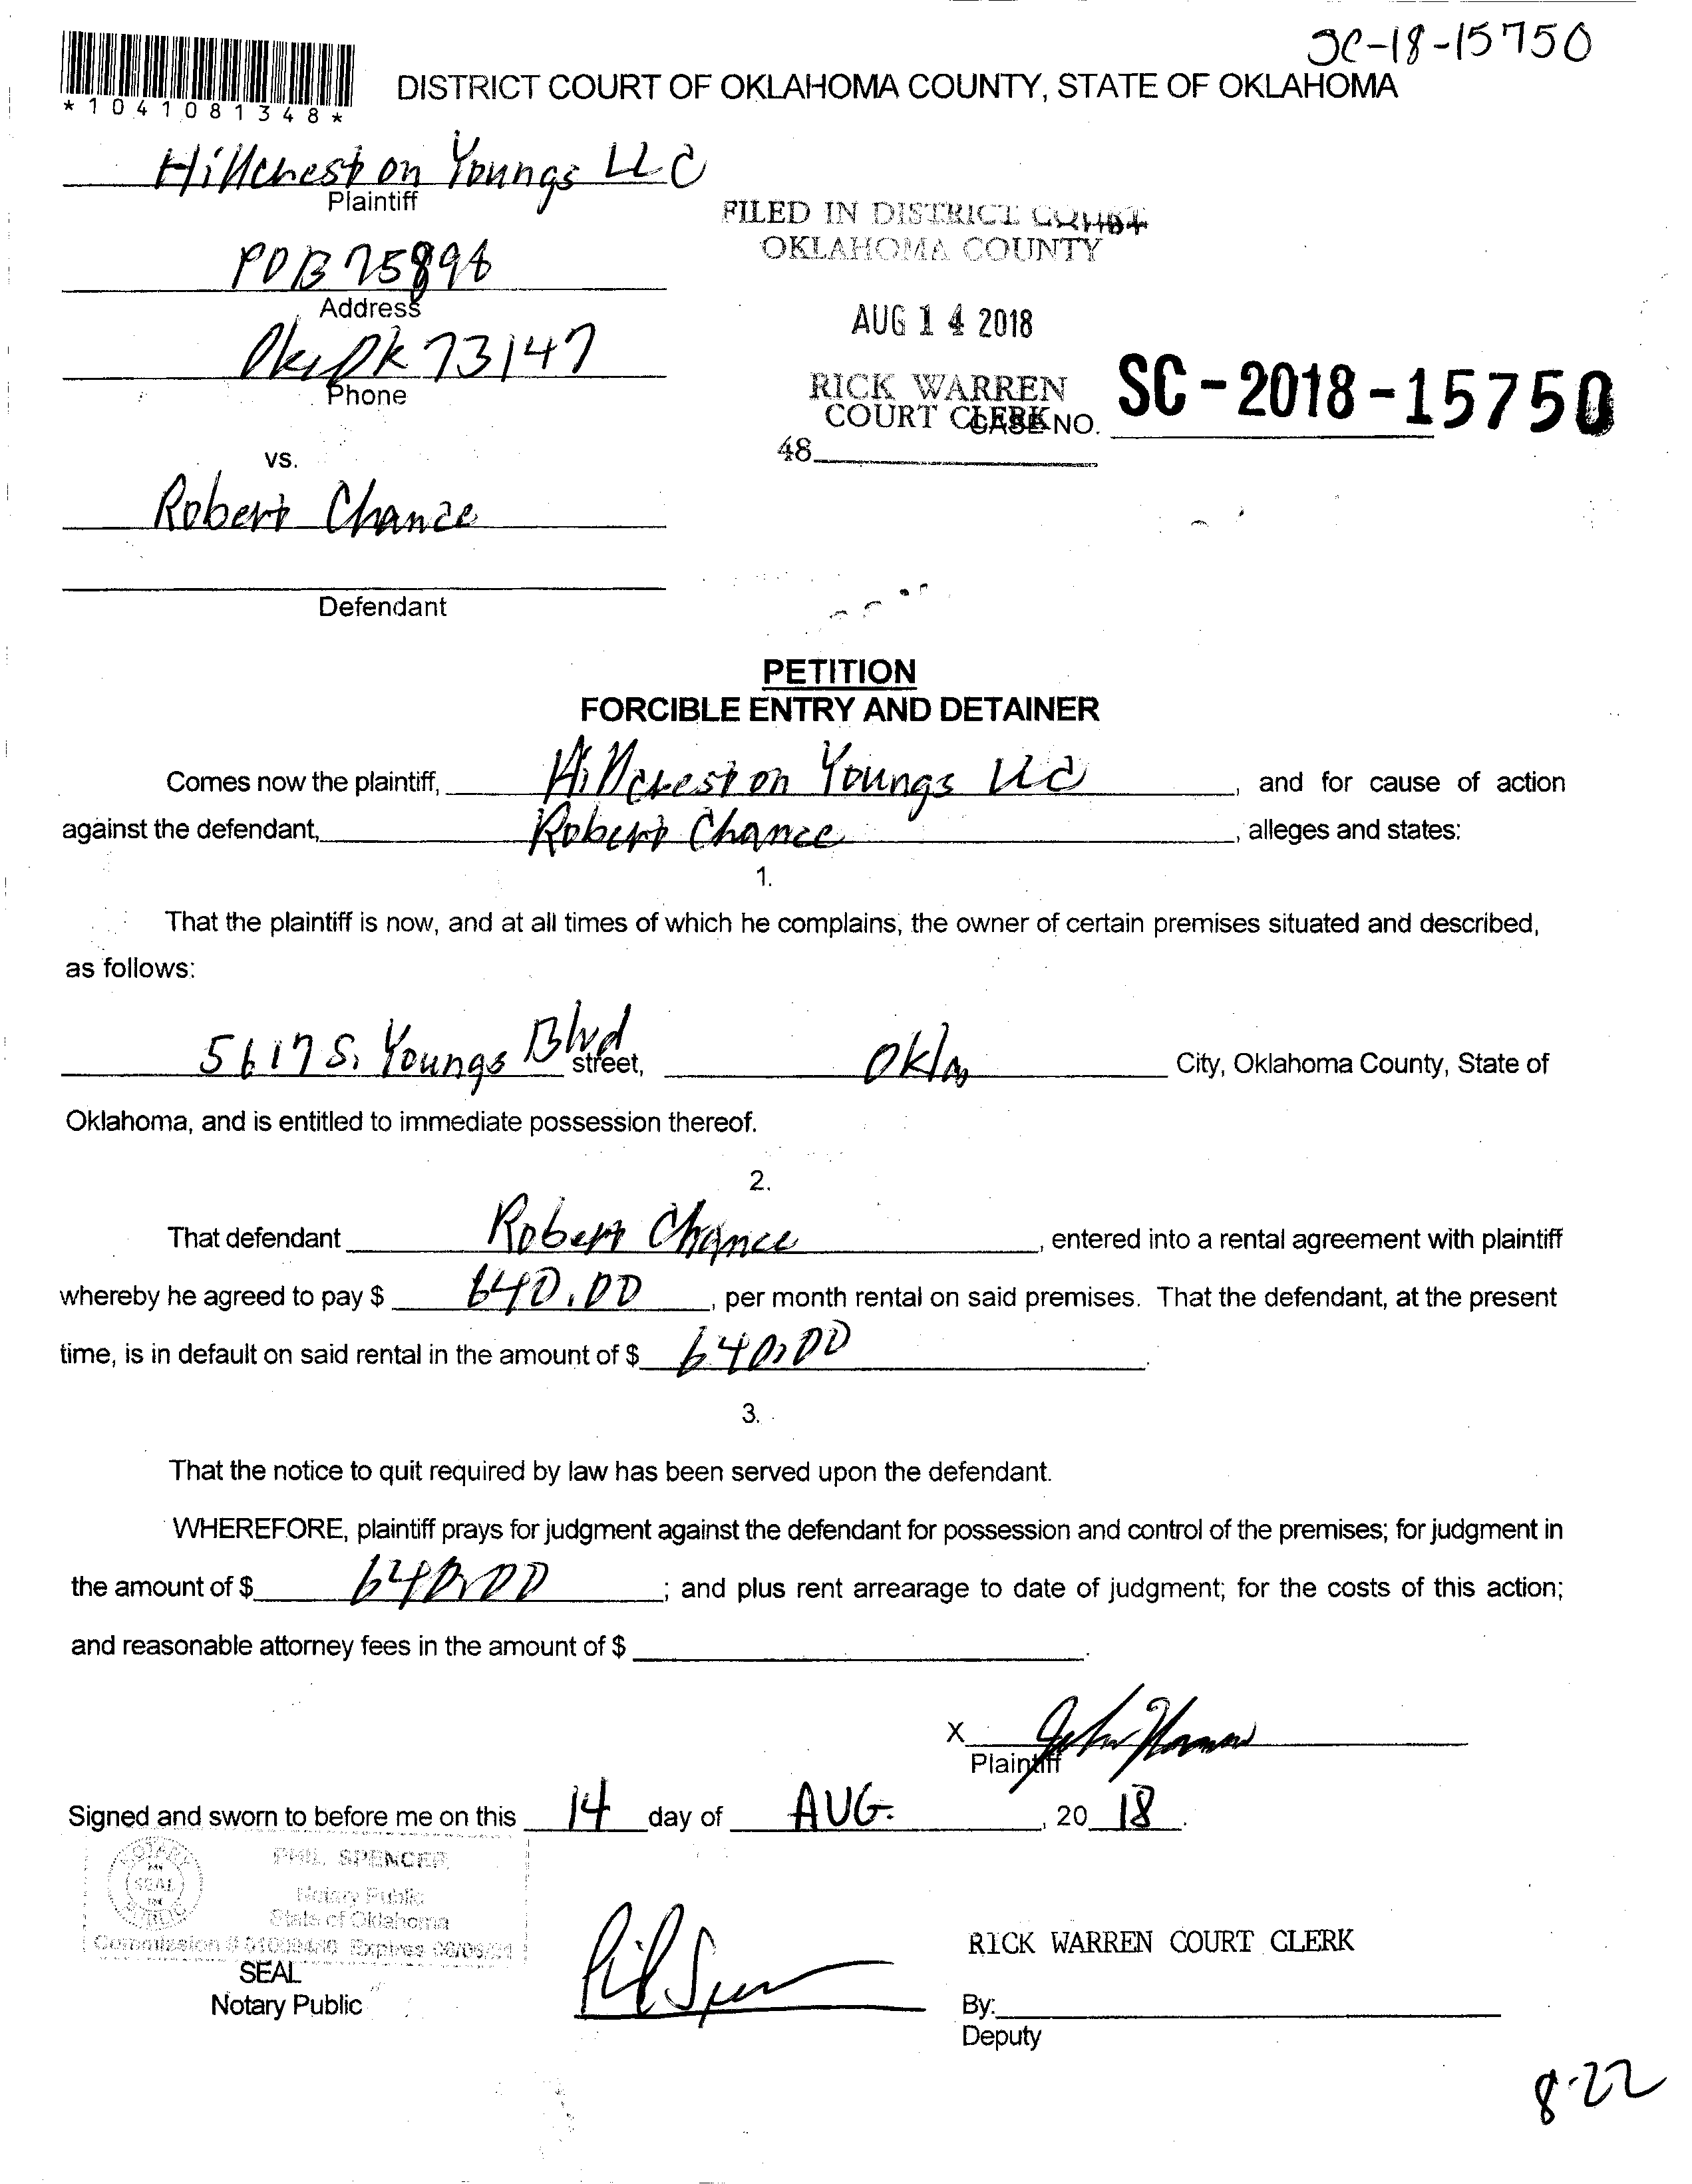 SC-18-15750
*1041081348*
DISTRICT COURT OF OKLAHOMA COUNTY, STATE OF OKLAHOMA
Hillcrest on Youngs LLC
Plaintiff
FILED IN DISTRICT COURT
OKLAHOMA COUNTY
POB 75898
Address
AUG 14 2018
Ok, Ok 73147
Phone
RICK WARREN
COURT CLERK
CASE NO. SC-2018-15750
48
vs.
Robert Chance
Defendant
PETITION
FORCIBLE ENTRY AND DETAINER
Comes now the plaintiff, Hillcrest on Youngs LLC, and for cause of action
against the defendant, Robert Chance, alleges and states:
1.
That the plaintiff is now, and at all times of which he complains, the owner of certain premises situated and described,
as follows:
5617 S. Youngs Blvd street, Okla City, Oklahoma County, State of
Oklahoma, and is entitled to immediate possession thereof.
2.
That defendant Robert Chance, entered into a rental agreement with plaintiff
whereby he agreed to pay $ 640.00, per month rental on said premises. That the defendant, at the present
time, is in default on said rental in the amount of $ 640.00.
3.
That the notice to quit required by law has been served upon the defendant.
WHEREFORE, plaintiff prays for judgment against the defendant for possession and control of the premises; for judgment in
the amount of $ 640.00; and plus rent arrearage to date of judgment; for the costs of this action;
and reasonable attorney fees in the amount of $
X
Plaintiff
Signed and sworn to before me on this 14 day of AUG., 20 18.
NOTARY
SEAL
PUBLIC
PHIL SPENCER
Notary Public
State of Oklahoma
SEAL
Notary Public
Phil Spencer
RICK WARREN COURT CLERK
By:
Deputy
8-22